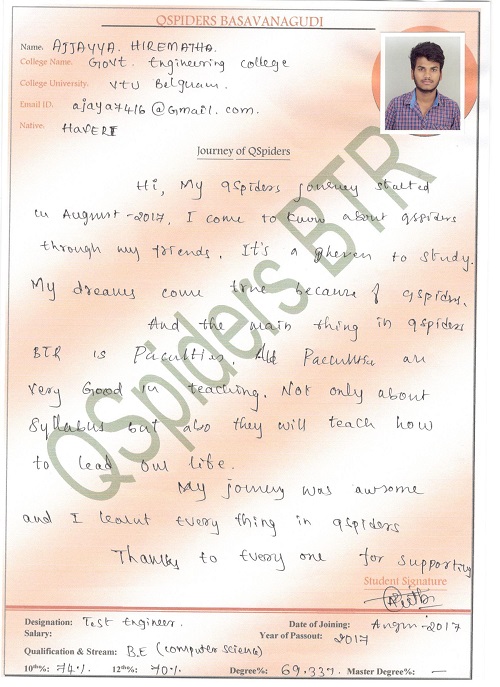 QSPIDERS BASAVANAGUDI
Name: AJJAYYA. HIREMATHA.
College Name: Govt. Engineering college
College University: VTU Belguam.
Email ID: ajaya7416@Gmail.com.
Native: HAVERI
Journey of QSpiders
Hi, My qspiders journey started
in August-2017, I come to know about qspiders
through my friends. It's a to study.
My dreams come true because of qspiders.
And the main thing in qspiders
BTR is Faculties. All are
very Good in teaching. Not only about
Syllabus but also they will teach how
to lead our life.
My journey was awsome
and I learnt every thing in qspiders
Thanks to Every one for supporting
QSpiders BTR
Student Signature
Designation: Test Engineer. Date of Joining: -2017
Salary: Year of Passout: 2017
Qualification & Stream: B.E (computer science)
10th%: 74% 12th%: 70% Degree%: 69.33%. Master Degree%: —